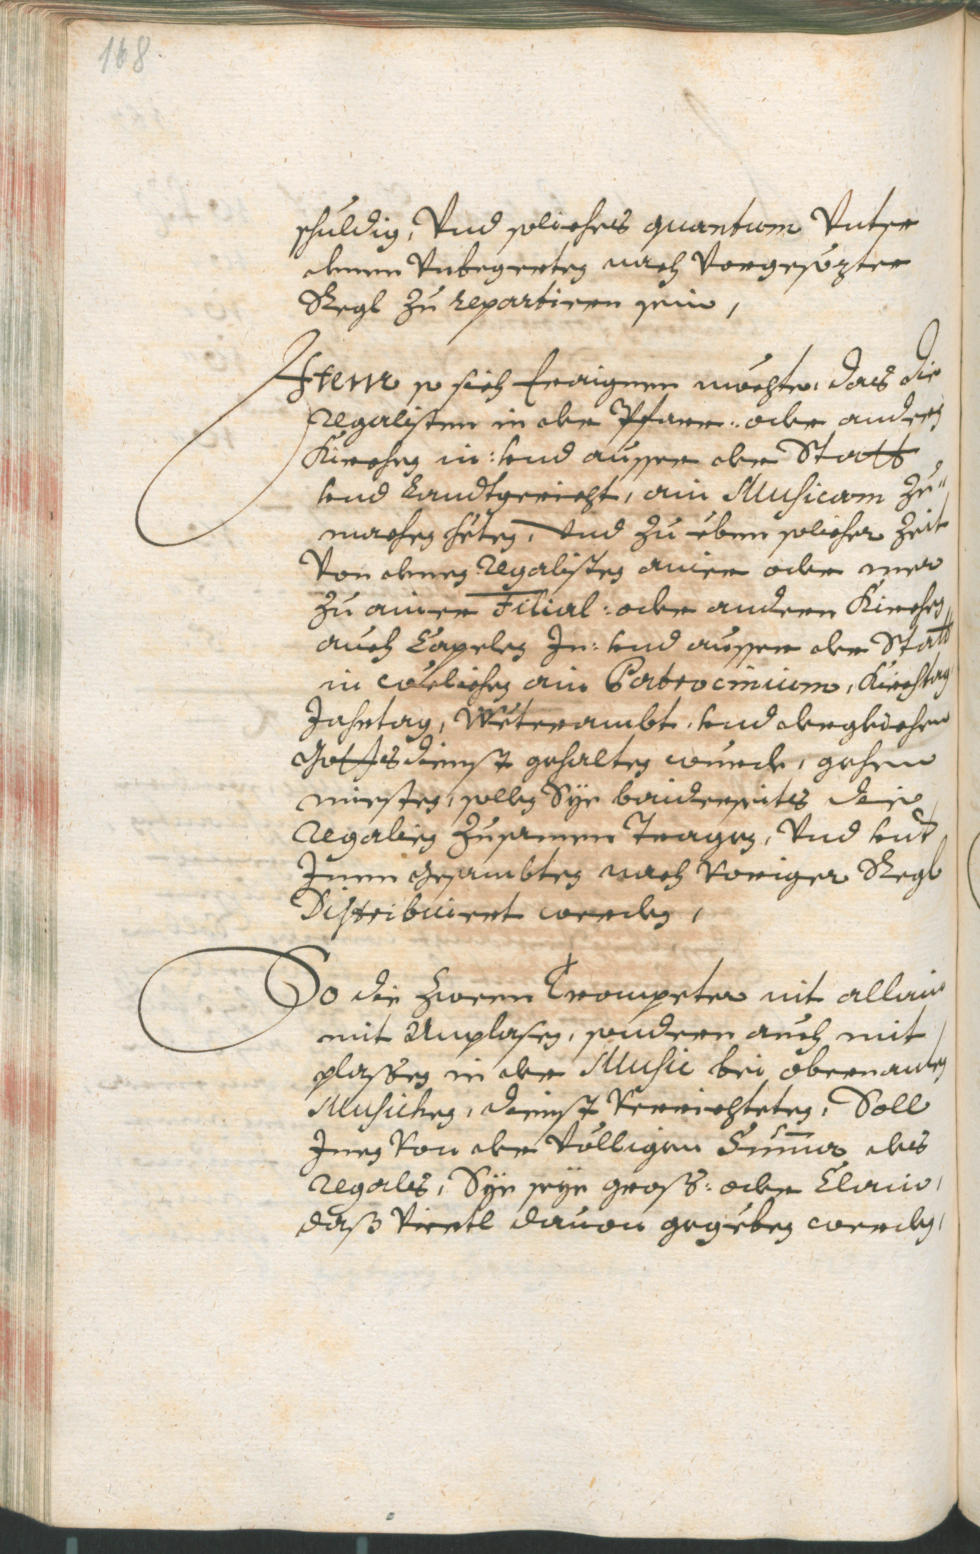 168.
schuldig, Vnd soliches quantum Vnter
denen Vnbegerten nach Vorgesezter
Regl zu repartieren sein,
Item so sich Eraignen mechte, das die
Regalisten in der Pfarr: oder andern
Kirchen in: vnd ausser der Statt
vnd Landtgericht, ain Musicam zu"
machen heten, Vnd zu eben solicher Zeit
Von denen Regalisten ainer oder mer
zu ainer Filial: oder andern Kirchen
auch Capelen In: vnd ausser der Statt
in welichen ain Patrocinium, Kirchtag
Jahrtag, Weterambt, vnd dergleichen
Gottsdienst gehalten wurde, gehen
miesten, sollen Sye baiderseits die
Regalien zusamen Tragen, Vnd vnt
Inen gesambten nach Voriger Regl
Distribuiert werden,
So die Zween Trompeter nit allain
mit Anplasen, sondern auch mit
plassen in der Music bei obernanten
Musichen, dienst Verrichteten, Soll
Inen Von der Völligen Summa des
Regals, Sye seye gross: oder Clain,
dass Viertl dauon gegeben werden,